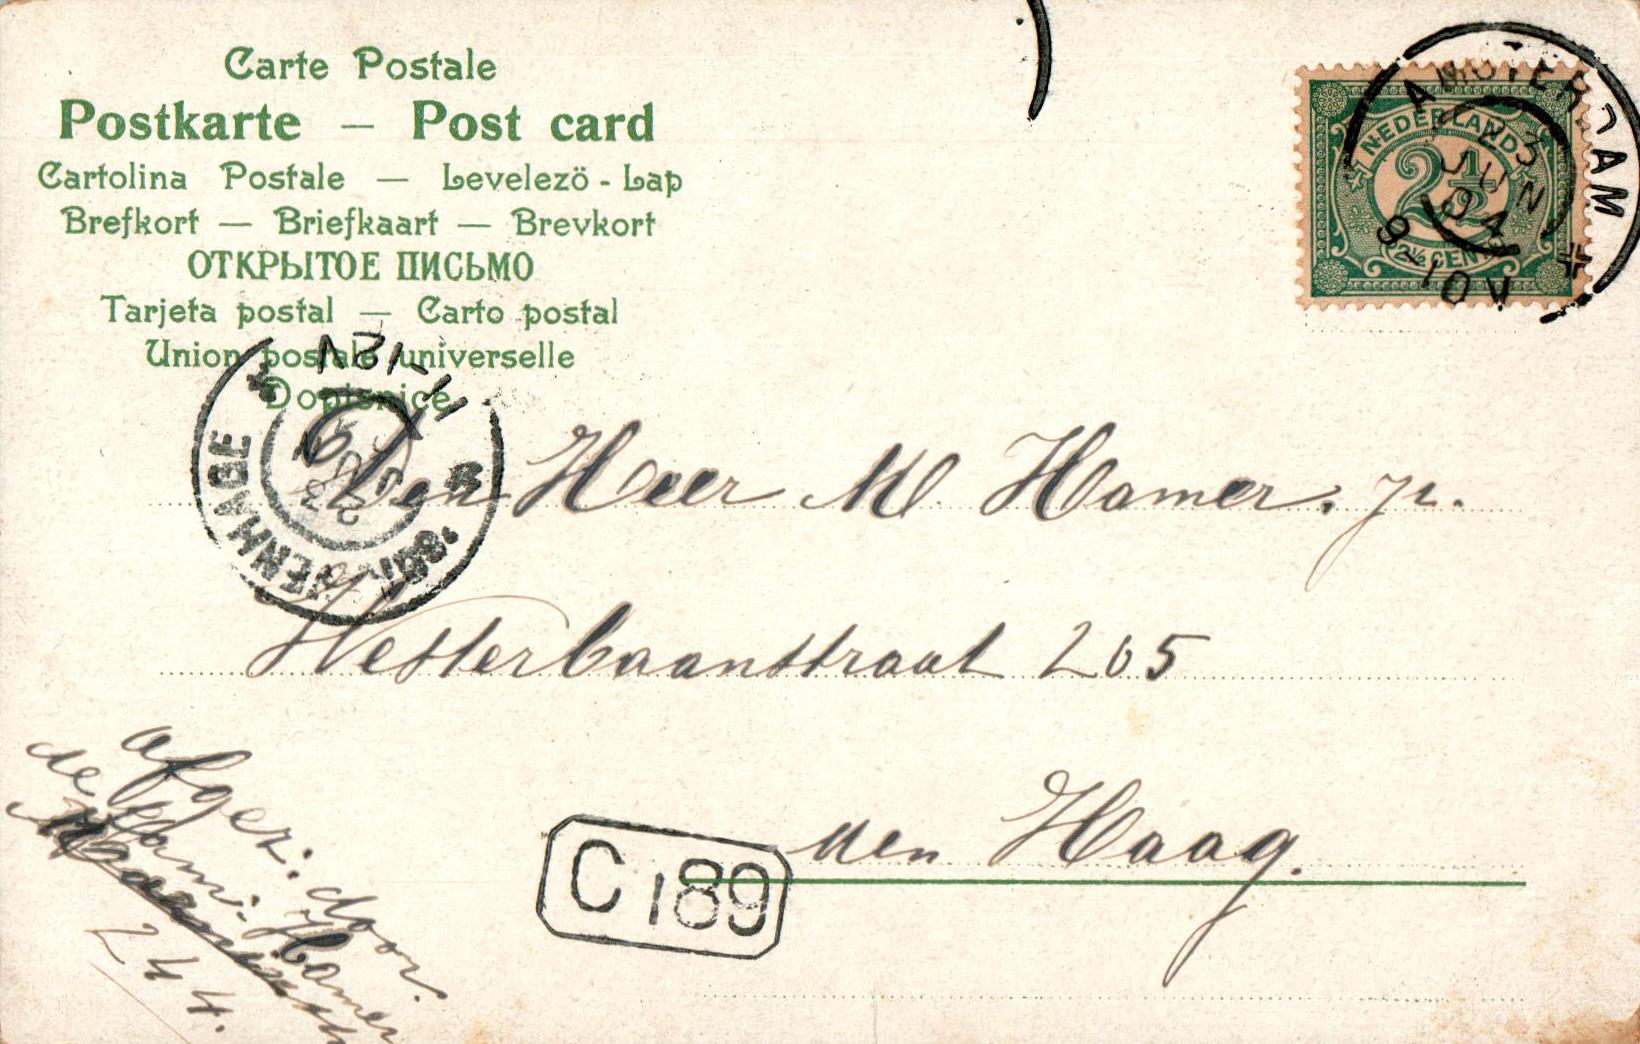 Carte Postale
Postkarte — Post card
Cartolina Postale — Levelezö - Lap
Brefkort — Briefkaart — Brevkort
ОТКРЫТОЕ ПИСЬМО
Tarjeta postal — Carto postal
Union postale universelle
Dopisnice
AMSTERDAM
23 JUN 04
9-10V
NEDERLAND
2½
2½ CENT
'S GRAVENHAGE
23 JUN 04
11-12V
Den Heer M Hamer. Jr.
Westerbaanstraat 205
den Haag.
C 189
afgez: door
de fam: Hamer
244.